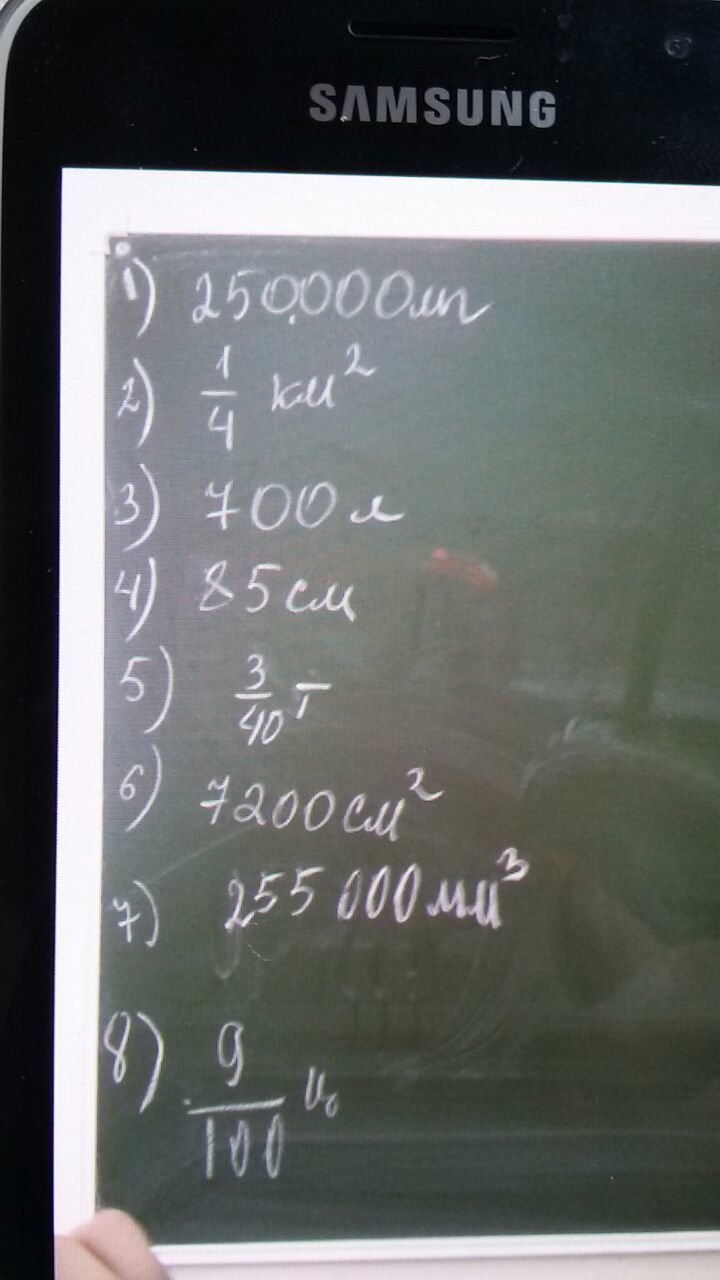 SAMSUNG
1) 250000мг
2) 1/4 км²
3) 700 л
4) 85 см
5) 3/40 т
6) 7200 см²
7) 255 000 мм³
8) 9/100 ц